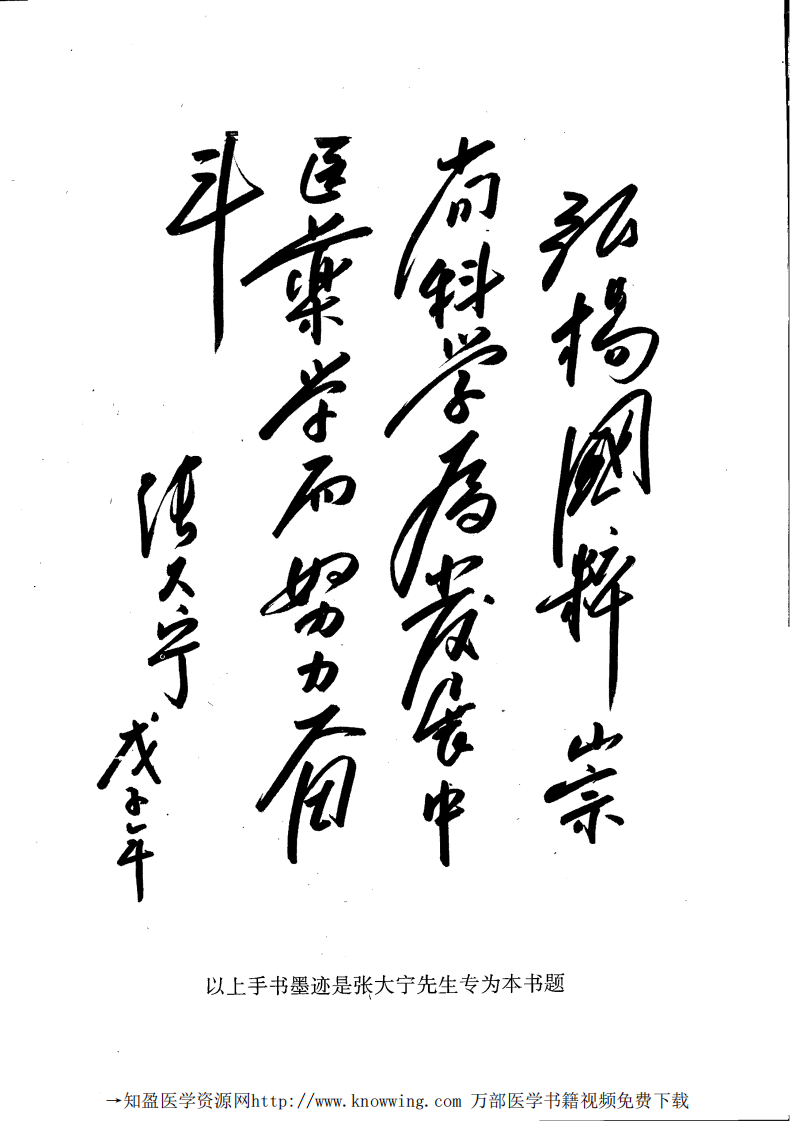 弘楊國粹崇
尚科学為發展中
医藥学而努力奋
斗
張大宁
戊子年
以上手书墨迹是张大宁先生专为本书题
→知盈医学资源网http://www.knowwing.com 万部医学书籍视频免费下载